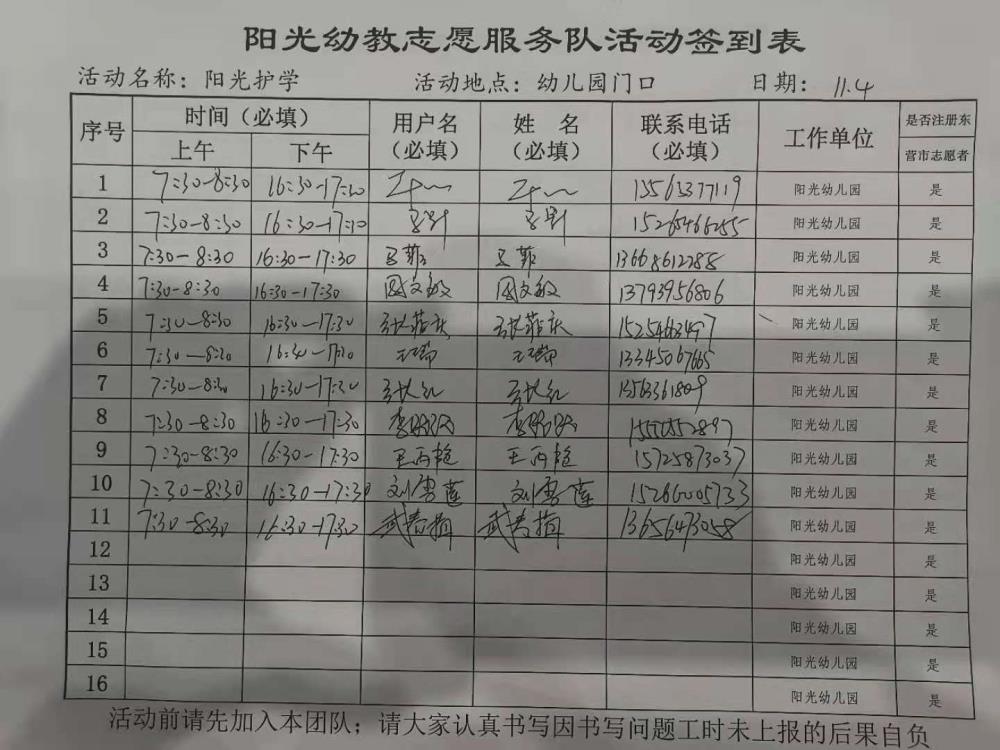 阳光幼教志愿服务队活动签到表
活动名称：阳光护学 活动地点：幼儿园门口 日期： 11.4
序号 时间（必填） 上午 下午 用户名（必填） 姓名（必填） 联系电话（必填） 工作单位 是否注册东营市志愿者
1 7:30-8:30 16:30-17:30 15563377119 阳光幼儿园 是
2 7:30-8:30 16:30-17:30 阳光幼儿园 是
3 7:30-8:30 16:30-17:30 王菲 王菲 13668612288 阳光幼儿园 是
4 7:30-8:30 16:30-17:30 周文敏 周文敏 13793956806 阳光幼儿园 是
5 7:30-8:30 16:30-17:30 15254663497 阳光幼儿园 是
6 7:30-8:30 16:30-17:30 王瑞 王瑞 13345067665 阳光幼儿园 是
7 7:30-8:30 16:30-17:30 张红 张红 13563361809 阳光幼儿园 是
8 7:30-8:30 16:30-17:30 15550552897 阳光幼儿园 是
9 7:30-8:30 16:30-17:30 王丙艳 王丙艳 15725873037 阳光幼儿园 是
10 7:30-8:30 16:30-17:30 刘雪莲 刘雪莲 15266005733 阳光幼儿园 是
11 7:30-8:30 16:30-17:30 武春梅 武春梅 13656473058 阳光幼儿园 是
12 阳光幼儿园 是
13 阳光幼儿园 是
14 阳光幼儿园 是
15 阳光幼儿园 是
16 阳光幼儿园 是
活动前请先加入本团队；请大家认真书写因书写问题工时未上报的后果自负